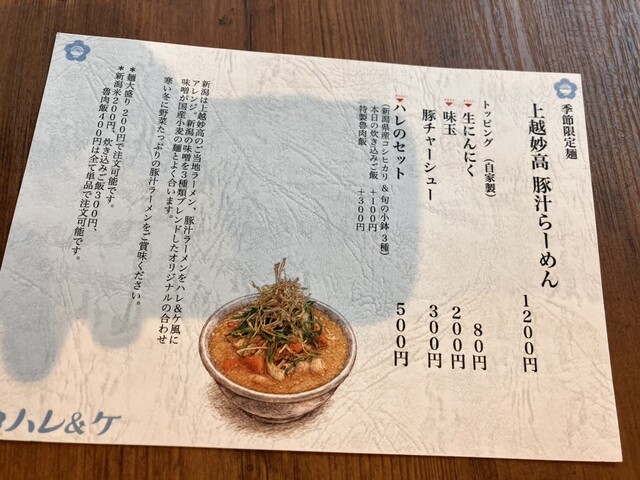 季節限定麺
上越妙高 豚汁らーめん 1200円
トッピング（自家製）
生にんにく 80円
味玉 200円
豚チャーシュー 300円
ハレのセット 500円
（新潟県産コシヒカリ & 旬の小鉢3種）
本日の炊き込みご飯 +100円
特製魯肉飯 +300円
新潟は上越妙高のご当地ラーメン、豚汁ラーメンをハレ&ケ風に
アレンジ。新潟の味噌を3種類ブレンドしたオリジナルの合わせ
味噌が国産小麦の麺とよく合います。
寒い冬に野菜たっぷりの豚汁ラーメンをご賞味ください。
*麺大盛り200円で注文可能です。
*新潟米200円、炊き込みご飯300円、
魯肉飯400円は全て単品で注文可能です。
ハレ&ケ